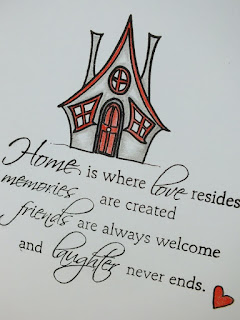 Home is where love resides
memories are created
friends are always welcome
and laughter never ends.